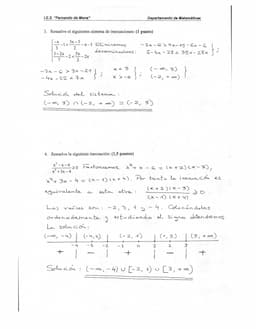 I.E.S. "Fernando de Mena" Departamento de Matemáticas
3. Resuelve el siguiente sistema de inecuaciones (1 punto)
Eliminamos
denominadores:
x < 3 (-∞, 3)
x > -2 (-2, +∞)
Solución del sistema:
(-∞, 3) ∩ (-2, +∞) = (-2, 3)
4. Resuelve la siguiente inecuación (1,5 puntos)
≥ 0 Factorizamos x² - x - 6 = (x+2)(x-3),
x² + 3x - 4 = (x-1)(x+4). Por tanto la inecuación es
equivalente a esta otra: (x+2)(x-3) / (x-1)(x+4) ≥ 0.
Las raíces son: -2, 3, 1 y -4. Colocándolas
ordenadamente y estudiando el signo obtendremos
la solución:
(-∞, -4) (-4, -2) (-2, 1) (1, 3) (3, +∞)
-4 -3 -2 -1 0 1 2 3
+ - + - +
Solución: (-∞, -4) ∪ [-2, 1) ∪ [3, +∞)